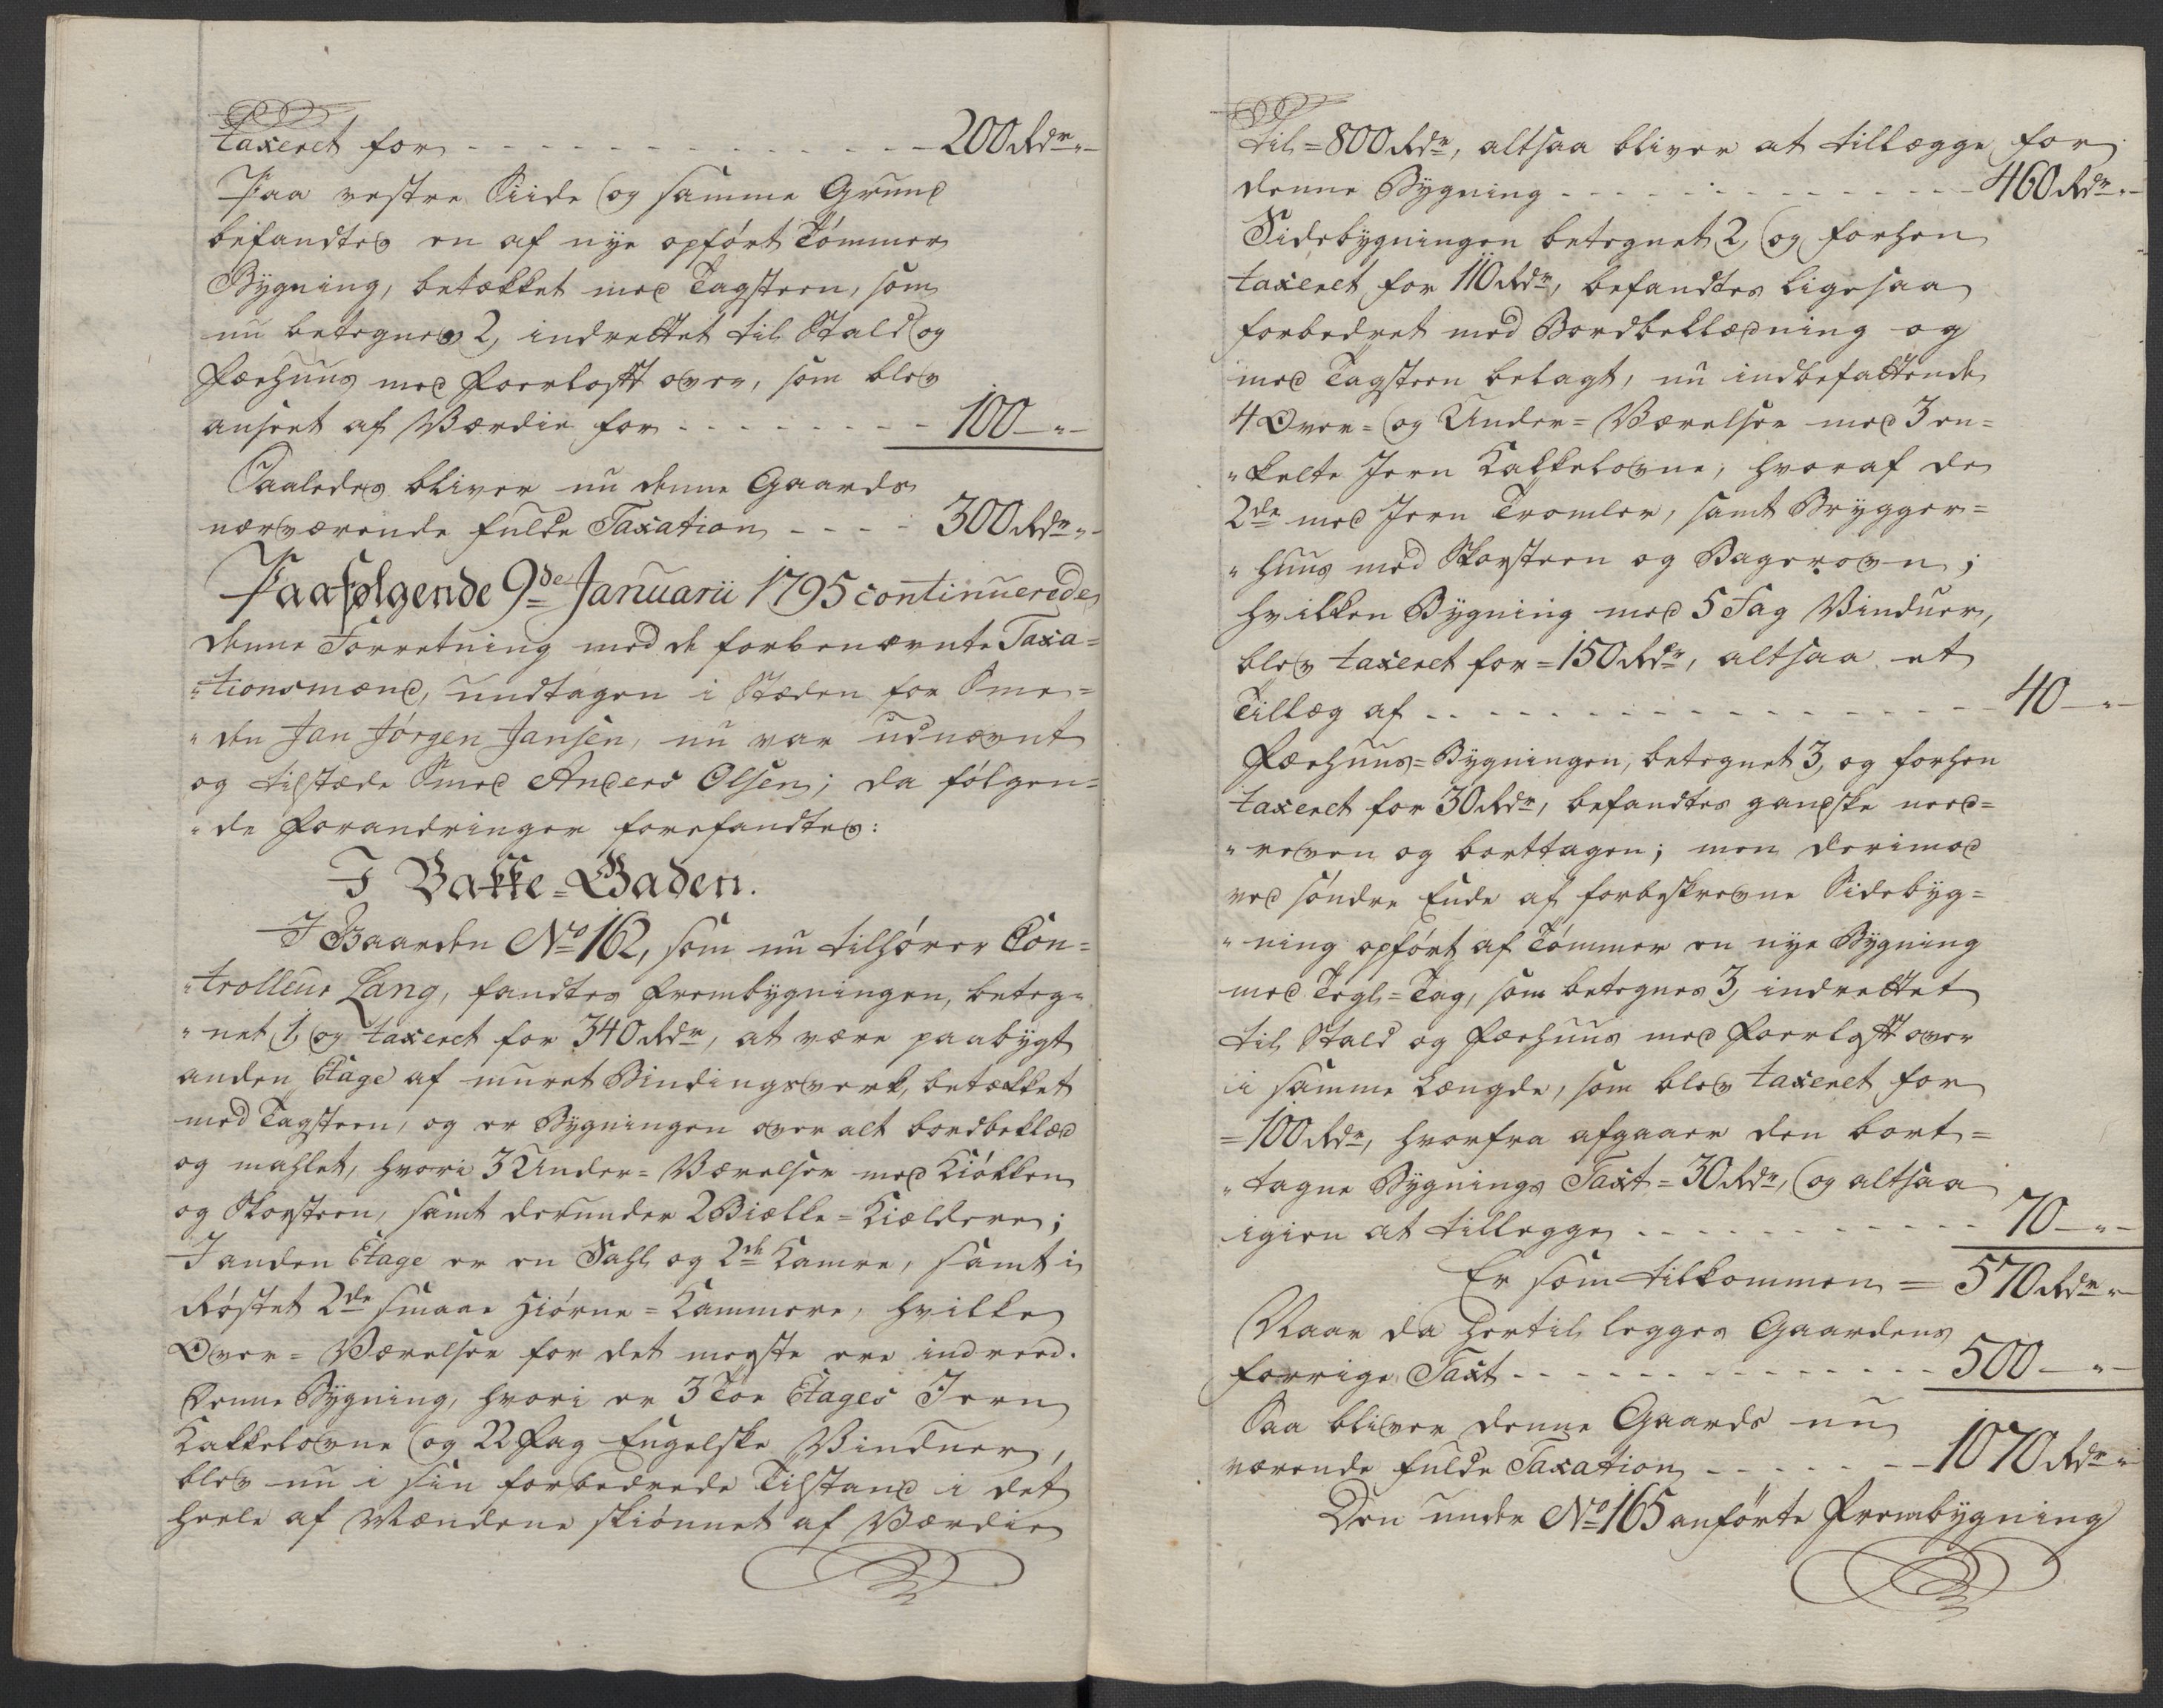 taxeret for - - - - - - - - - - - - - - - 200 Rdr "-
Paa vestre Siide og samme Grund
befandtes en af nye opført Tømmer
Bygning, betækket med Tagsteen, som
nu betegnes 2, indrettet til Stald og
Fæehuus med Foerloftt over, som blev
anseet af Værdie for - - - - - - - - 100 - " -
Saaledes bliver nu denne Gaards
nærværende fulde Taxation - - - - 300 Rdr "-
Paafølgende 9de Januarii 1795 continuerede
denne Forretning med de forbenævnte Taxa=
"tionsmænd, undtagen i Stæden for Sme=
"den Jan Jørgen Jansen, nu var udnævnt
og tilstæde Smed Anders Olsen; da følgen=
"de Forandringer forefandtes:
I Bakke=Gaden.
I Gaarden No 162, som nu tilhører Con=
"trolleur Lang, fandtes Frembygningen, beteg=
"net 1, og taxeret for 340 Rdr, at være paabygt
anden Etage af muret Bindingsverk, betækket
med Tagsteen, og er Bygningen over alt bordbeklæd
og mahlet, hvori 3 Under=Værelser med Kiøkken
og Skorsteen, samt derunder 2 Biælke=Kieldere;
I anden Etage er en Sahl og 2de Kamre, samt i
Røstet 2de smaae Hiørne=Kammere, hvilke
Over=Værelser for det meeste ere indreed.
Denne Bygning, hvori er 3 Toe Etages Jern
Kakkelovne og 22 Fag Engelske Vinduer,
blev nu i sin forbedrede Tilstand i det
heele af Mændene skiønnet af Værdie
til = 800 Rdr, altsaa bliver at tillægge for
denne Bygning - - - - - - - - - - - - - 460 Rdr "-
Sidebygningen betegnet 2, og forhen
taxeret for 110 Rdr, befandtes ligesaa
forbedret med Bordbeklædning og
med Tagsteen belagt, nu indbefattende
4 Over= og Under=Værelser med 3 en=
"kelte Jern Kakkelovne, hvoraf de
2de med Jern Tromler, samt Brygger=
"huus med Skorsteen og Bagerovn;
hvilken Bygning med 5 Fag Vinduer,
blev taxeret for = 150 Rdr, altsaa et
Tillæg af - - - - - - - - - - - - - - - - 40 - " -
Fæehuus=Bygningen, betegnet 3, og forhen
taxeret for 30 Rdr, befandtes gandske need=
"reven og borttagen; men derimod
ved søndre Ende af forbeskrevne Sidebyg=
"ning opført af Tømmer en nye Bygning
med Tegl=Tag, som betegnes 3, indrettet
til Stald og Fæehuus med Foerloftt over
i samme Længde, som blev taxeret for
=100 Rdr, hvorfra afgaaer den bort=
"tagne Bygnings Taxt = 30 Rdr, og altsaa
igien at tillegge - - - - - - - - - - - 70 - " -
Er som tilkommen = 570 Rdr "-
Naar da hertil legges Gaardens
forrige Taxt - - - - - - - - - - - - - 500 - " -
Saa bliver denne Gaards nu
værende fulde Taxation - - - - - - 1070 Rdr "-
Den under No 165 anførte Frembygning